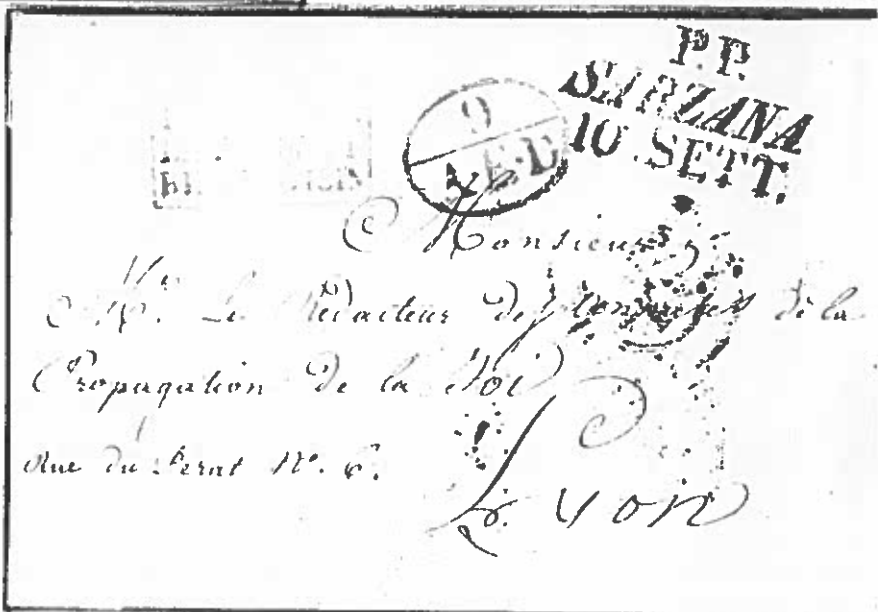 P.P.
SARZANA
10 SETT.
9
A.E.D
Monsieur
Mr. Le Rédacteur des Annales de la
Propagation de la Foi
Rue du Perat No. 6.
Lyon